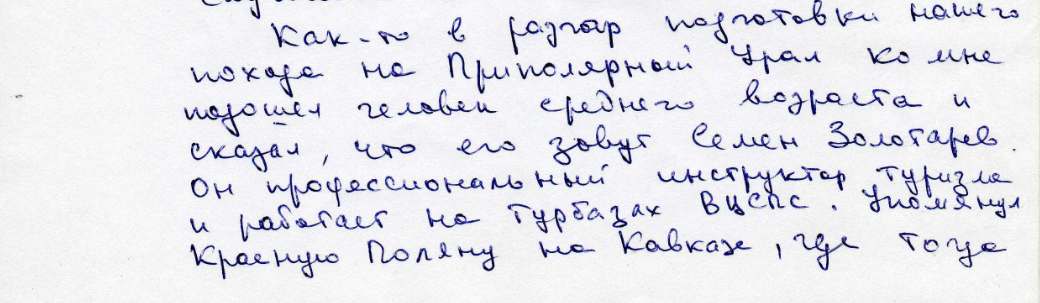 Как-то в разгар подготовки нашего
похода на Приполярный Урал ко мне
подошел человек среднего возраста и
сказал, что его зовут Семен Золотарев.
Он профессиональный инструктор туризма
и работает на турбазах ВЦСПС. Упомянул
Красную Поляну на Кавказе, где тогда